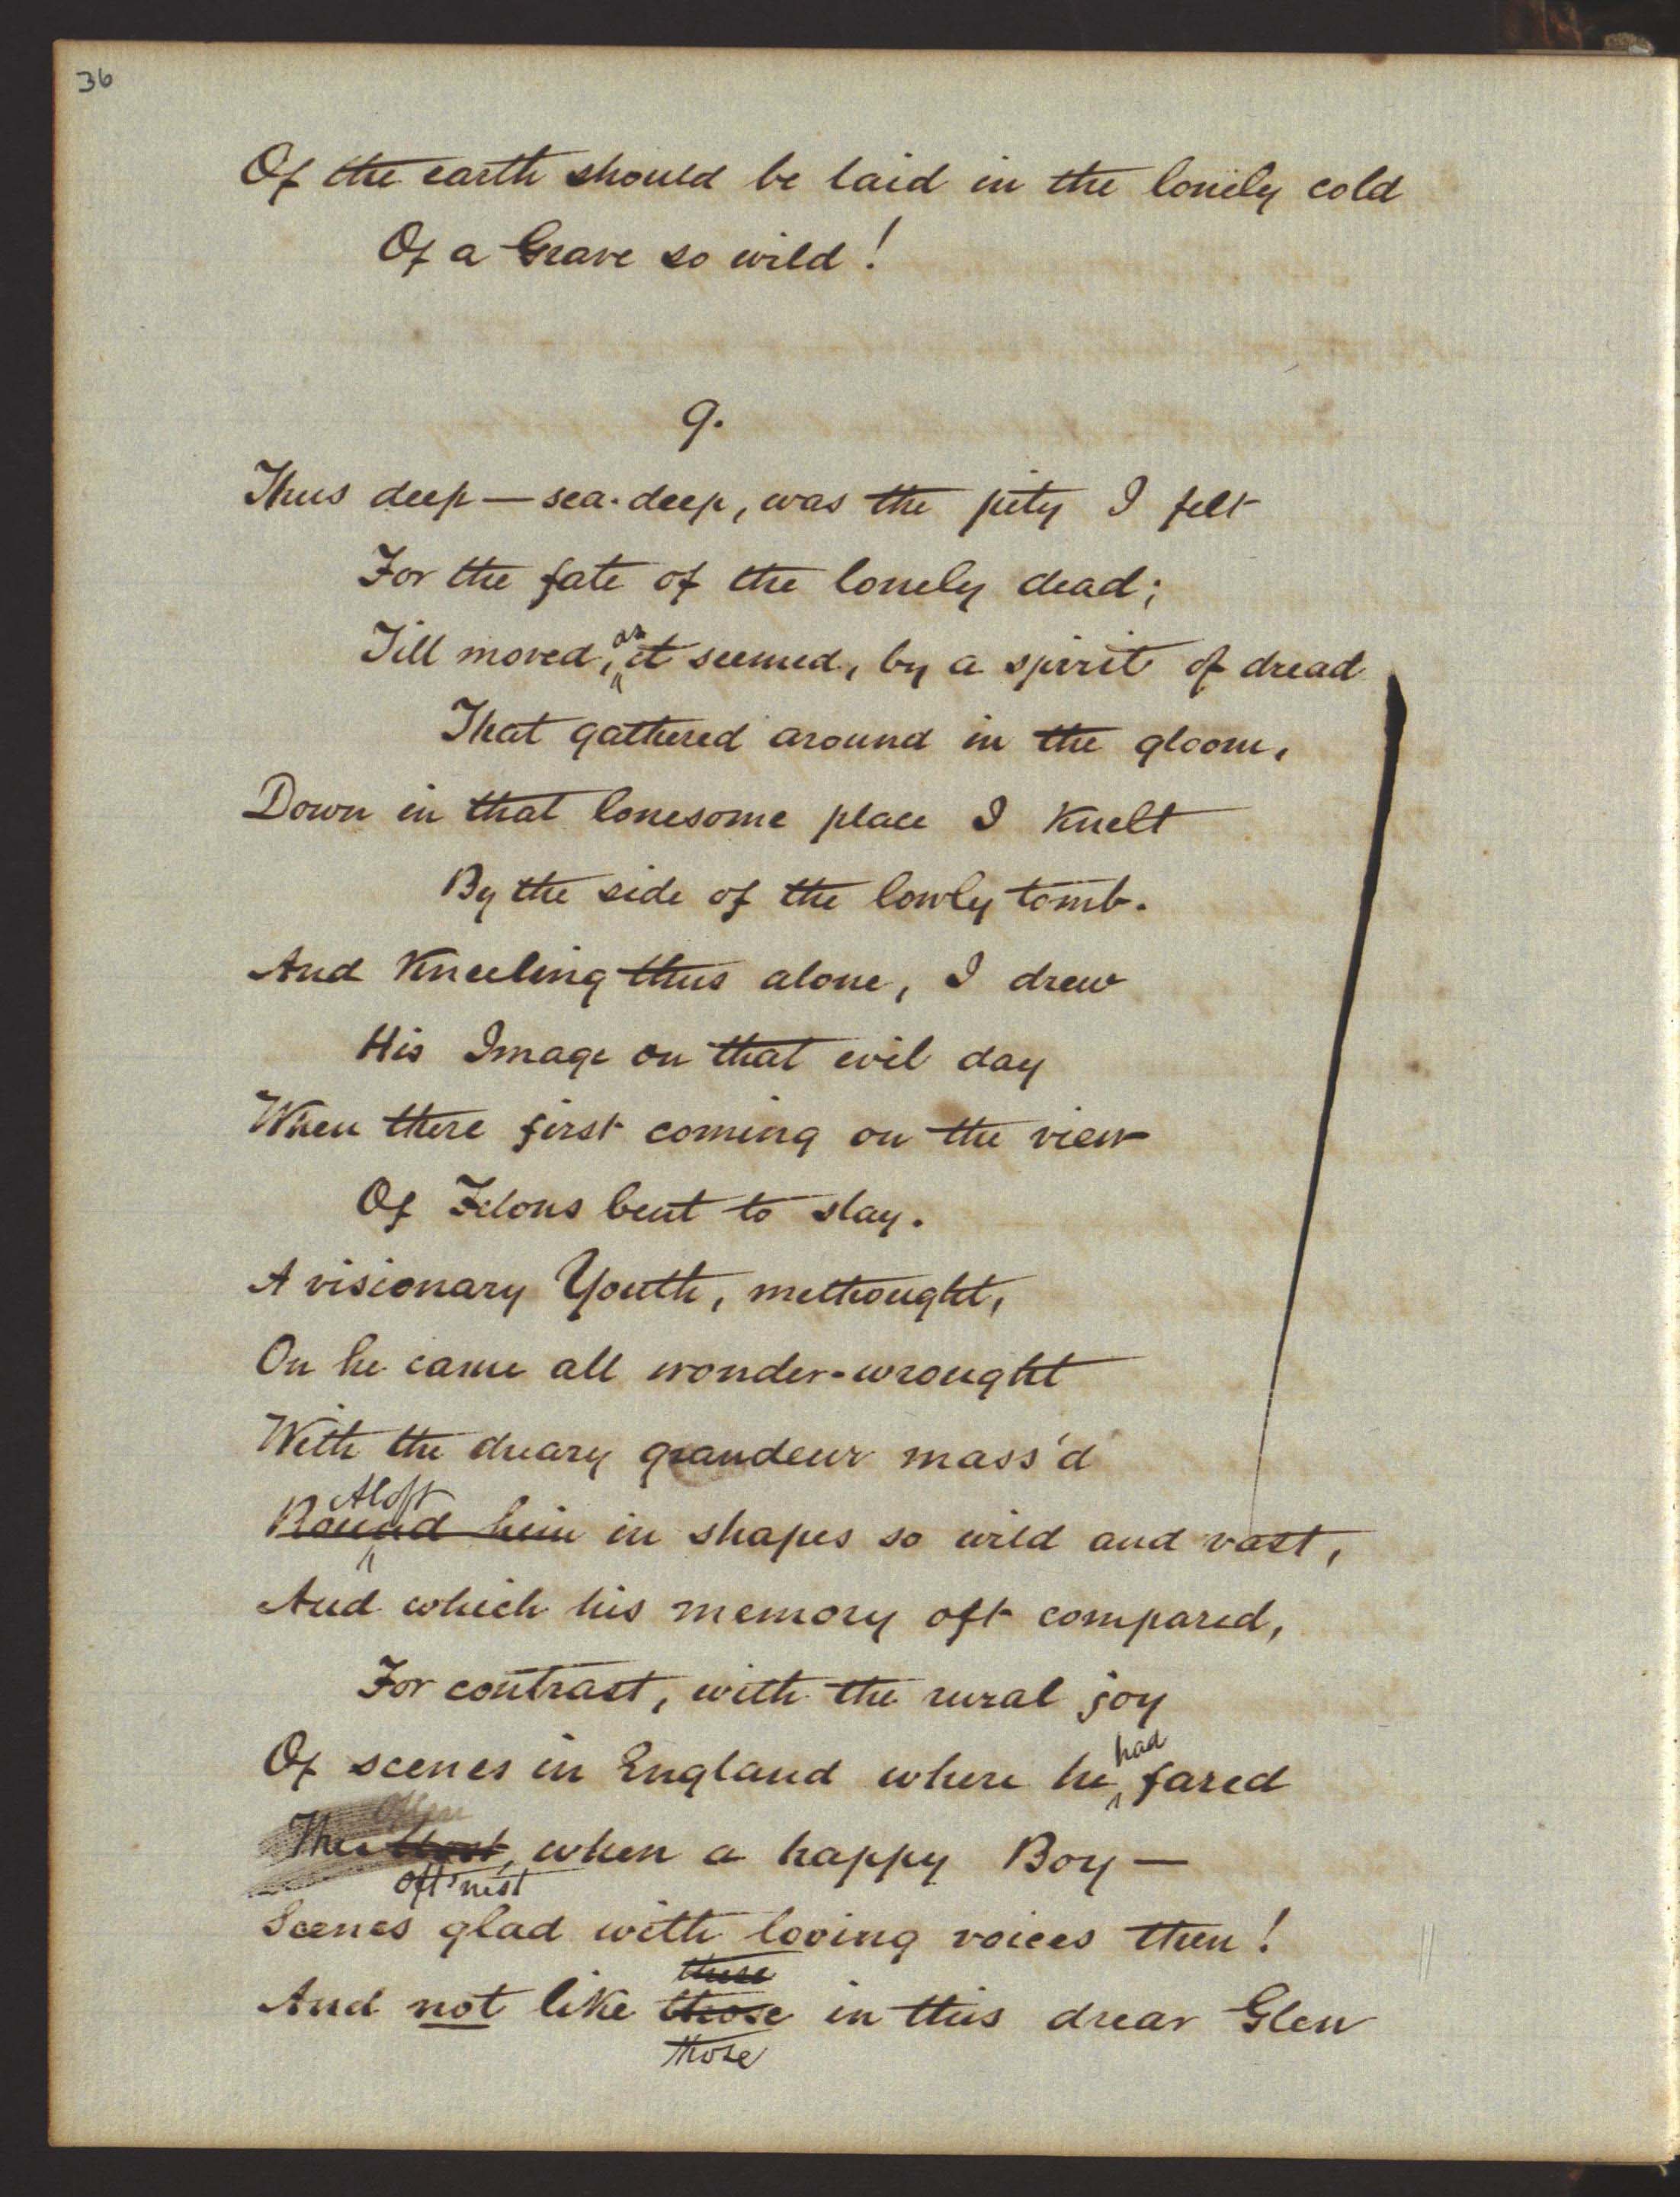 36
Of the earth should be laid in the lonely cold
Of a Grave so wild!
9.
Thus deep — sea-deep, was the pity I felt
For the fate of the lonely dead;
Till moved, as it seemed, by a spirit of dread
That gathered around in the gloom,
Down in that lonesome place I knelt
By the side of the lowly tomb.
And kneeling thus alone, I drew
His Image on that evil day
When there first coming on the view
Of Felons bent to slay.
A visionary Youth, methought,
On he came all wonder-wrought
With the dreary grandeur mass'd
Aloft
Round him in shapes so wild and vast,
And which his memory oft compared,
For contrast, with the rural joy
Of scenes in England where he had fared
when a happy Boy —
Scenes glad with loving voices then!
these
And not like those in this drear Glen
those